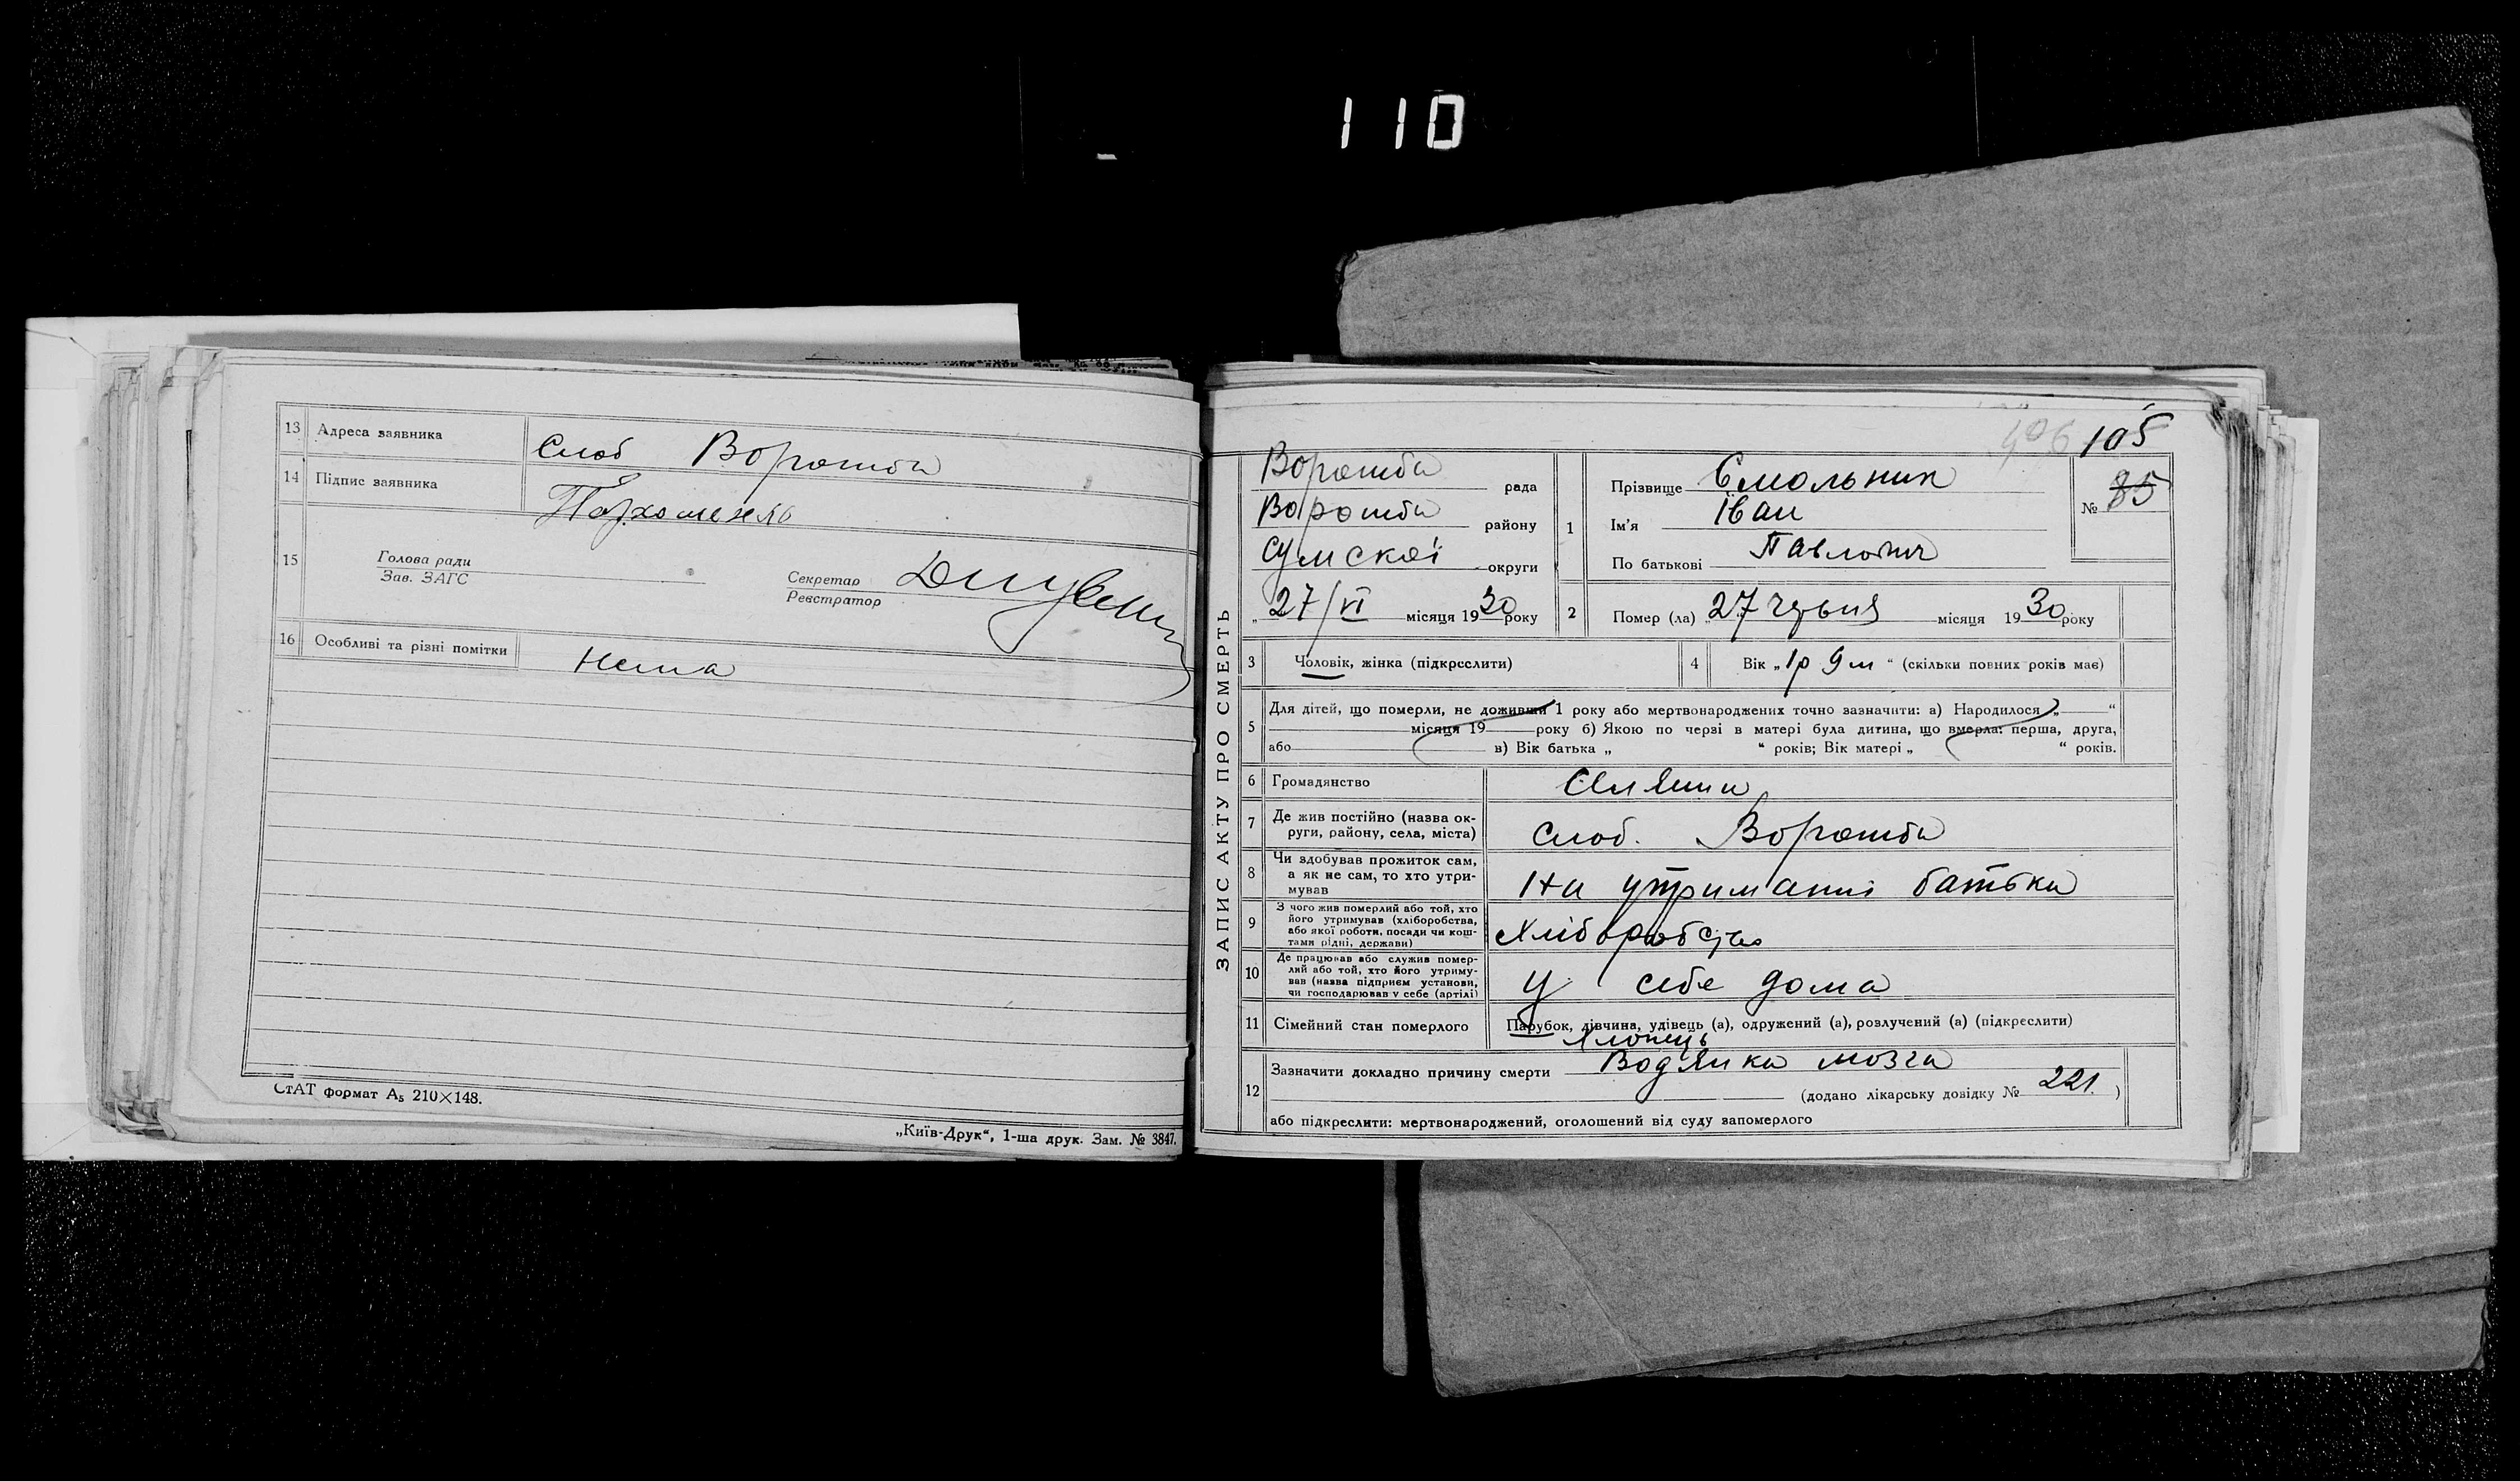 110
13 Адреса заявника Слоб Ворожба
14 Підпис заявника Пархоменко
15 Голова ради
Зав. ЗАГС
Секретар
Реєстратор
16 Особливі та різні помітки Нема
СтАТ формат А₅ 210×148.
„Київ-Друк“, 1-ша друк. Зам. № 3847.
406 105
ЗАПИС АКТУ ПРО СМЕРТЬ
Ворожба рада
Ворожба району
Сумскої округи
„27/VI місяця 1930 року
1 Прізвище Смольник
Ім'я Іван
По батькові Павлович
№ 85
2 Помер (ла) „27 червня місяця 1930 року
3 Чоловік, жінка (підкреслити)
4 Вік „1р 9м“ (скільки повних років має)
5 Для дітей, що померли, не доживши 1 року або мертвонароджених точно зазначити: а) Народилося „ “
місяця 19 року б) Якою по черзі в матері була дитина, що вмерла: перша, друга,
або в) Вік батька „ “ років; Вік матері „ “ років.
6 Громадянство
7 Де жив постійно (назва ок-
руги, району, села, міста) слоб. Ворожба
8 Чи здобував прожиток сам,
а як не сам, то хто утри-
мував На утриманні батька
9 З чого жив померлий або той, хто
його утримував (хліборобства,
або якої роботи, посади чи кош-
тами рідні, держави) Хліборобство
10 Де працював або служив помер-
лий або той, хто його утриму-
вав (назва підприєм установи,
чи господарював у себе (артілі) У себе дома
11 Сімейний стан померлого Парубок, дівчина, удівець (а), одружений (а), розлучений (а) (підкреслити)
Хлопець
12 Зазначити докладно причину смерти Водянка мозга
(додано лікарську довідку № 221.)
або підкреслити: мертвонароджений, оголошений від суду запомерлого